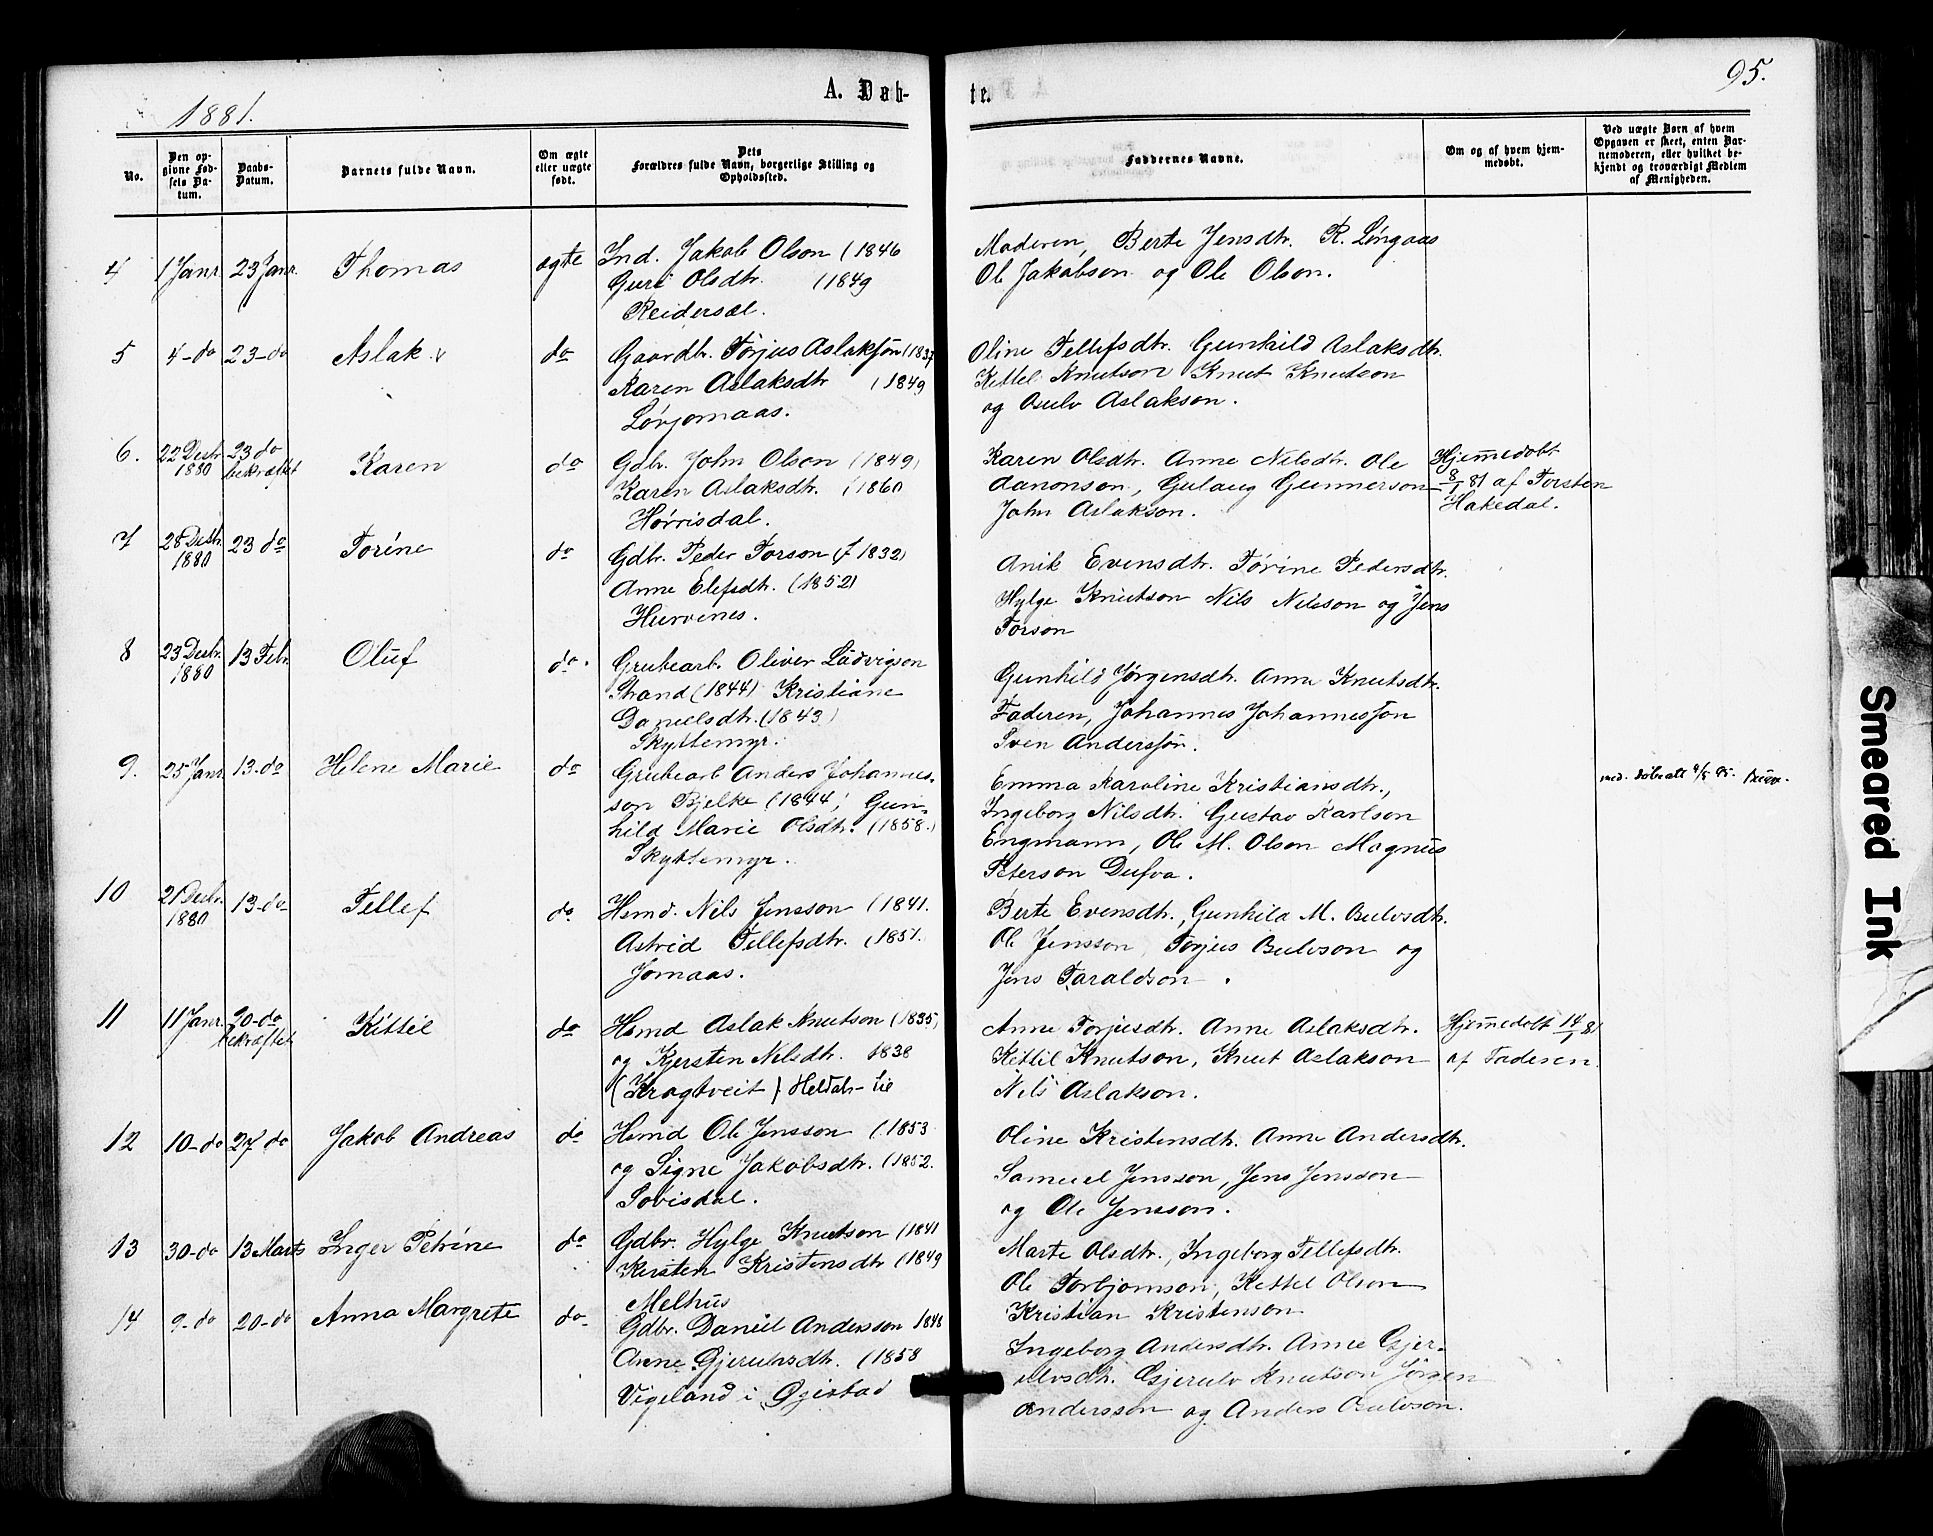 1881.
A. Døb-
te.
95.
No.
Den op-
givne Fød-
sels Da-
tum.
Daabs-
Datum.
Barnets fulde Navn.
Om ægte
eller uægte
født.
Dets
Forældres fulde Navn, borgerlige Stilling og
Opholdssted.
Faddernes Navne.
Om og af hvem hjem-
medøbt.
Ved uægte Børn af hvem
Opgaven er skeet, enten Bar-
nemoderen, eller hvilket be-
kjendt og troværdigt Medlem
af Menigheden.
4 1 Janr 23 Janr. Thomas ægte Ind. Jakob Olson (1846
Guri Olsdtr. (1849
Reidersæl.
Moderen, Berte Jensdtr. R.
Ole Jakobson og Ole Olson.
5 4-do 23-do Aslak do Gaardbr. Torjus Aslakson (1837
Karen Aslaksdtr (1849
Løvjomaas.
Oline Tellefsdtr. Gunhild Aslaksdtr.
Kittel Knutson Knut Knutson
og Osulv Aslakson.
6. 22 Desbr 1880 23 do bekræftet Karen do Gdbr. John Olson (1849)
Karen Aslaksdtr. (1860
Hørrisdal.
Karen Olsdtr. Anne Nilsdtr. Ole
Aanonson, Gulaug Gunnerson
John Aslakson.
Hjemmedøbt
8/1 81 af Torsten
Hakedal.
7 28 Desbr. 1880 23 do Torine do Gdbr. Peder Torson (f 1832)
Anne Elefsdtr. (1852)
Hurvenes.
Anik Evensdtr. Torine Pedersdtr.
Hylge Knutson Nils Nilsson og Jens
Torson
8 23 Desbr. 1880 13 Febr. Oluf do. Grubearb. Oliver Ludvigson
Strand (1844) Kristiane
Danielsdtr. (1843)
Skyttemyr.
Gunhild Jørgensdtr. Anne Knutsdtr.
Faderen, Johannes Johannesson
Sven Andersson.
9. 25 Janr 13-do Helene Marie do Grubearb Anders Johannes-
son Bjelke (1844, Gun-
hild Marie Olsdtr. (1858.)
Skyttemyr.
Emma Karoline Kristiansdtr.,
Ingeborg Nilsdtr. Gustav Karlson
Engmann, Ole M. Olson Magnus
Peterson Dufva.
10 21 Desbr. 1880 13-do Tellef do Hsmd. Nils Jensson (1841.
Astrid Tellefsdtr. (1851.
Jomaas.
Berte Evensdtr., Gunhild M. Osulvsdtr.
Ole Jensson, Torjus Osulvson og
Jens Taraldson.
11 11 Janr. 20-do bekræftet Kittil do Hsmd Aslak Knutson (1835)
og Kjersten Nilsdtr. 1838
(Kragtveit) Heldals-lie
Anne Torjusdtr. Anne Aslaksdtr.
Kittil Knutson, Knut Aslakson
Nils Aslakson.
Hjemmedøbt 14/1 81
af Faderen.
12 10-do 27 do Jakob Andreas do Hsmd Ole Jensson (1853
og Signe Jakobsdtr. (1852.
Sovisdal.
Oline Kristensdtr. Anne Andersdtr.
Samuel Jensson, Jens Jensson
og Ole Jensson.
13 30-do 13 Marts Inger Petrine do Gdbr. Hylge Knutson (1841
Kersten Kristensdtr (1849
Melhus
Marte Olsdtr., Ingeborg Tellefsdtr.
Ole Torbjornson, Kittel Olson
Kristian Kristenson
14 9-do 20-do Anna Margrete do Gdbr. Daniel Andersson 1848
Anne Gjerulvsdtr. (1858
Vigeland i Øgistad
Ingeborg Andersdtr. Anne Gjer-
ulvsdtr. Gjerulv Knutson Jørgen
Andersson og Anders Osulvson.
Smeared Ink